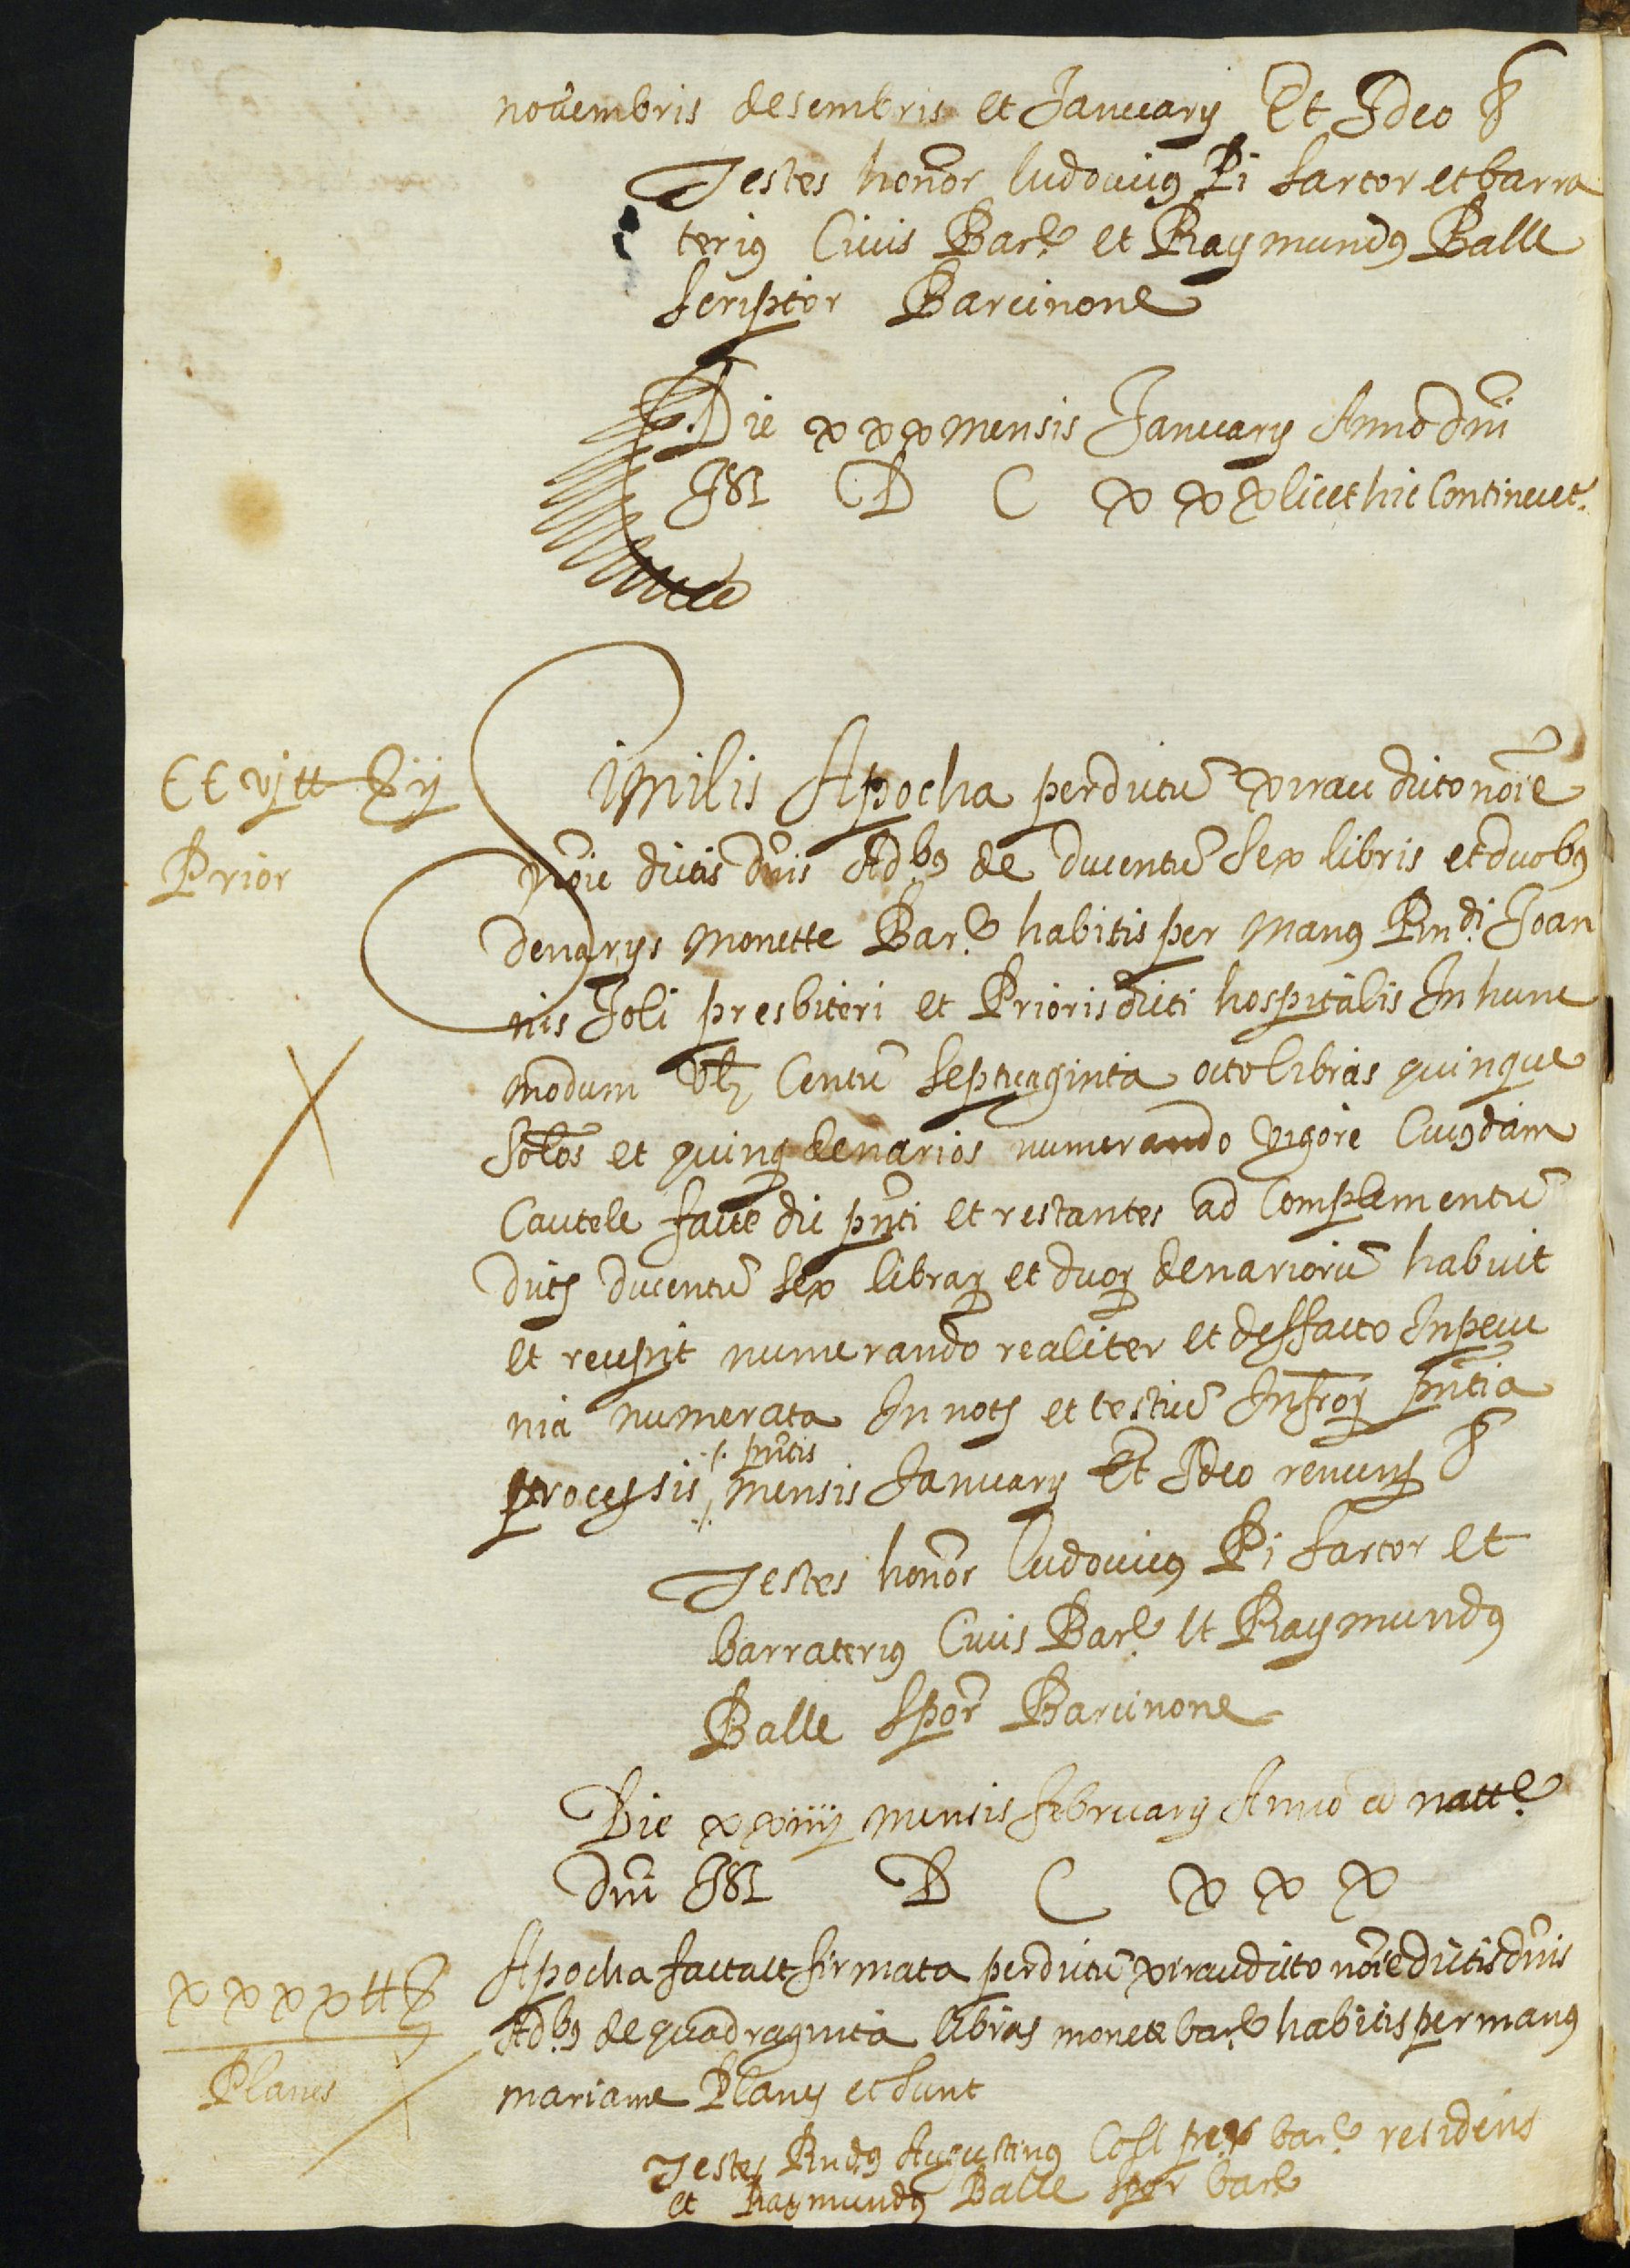 novembris desembris et Januarij Et Ideo &
Testes honor ludovicus Pi sartor et barra
terius Civis Barne et Raymundus Balle
scriptor Barcinone
Die xxx mensis Januarij Anno dni
M D C xxx licet hic continuet.
CCvj tt ij
Prior
Similis Apocha per dictum Xirau dicto noie
noie dictis dnis Adbus de ducentum sex libris et duobus
denarijs monette Barne habitis per manus Rndi Joan
nis Joli presbiteri et Prioris dicti hospitalis In hunc
modum vlz Centum septuaginta octo libras quinque
solos et quinq denarios numerando vigore Cuiusdam
Cautele facte die pnti et restantes ad Complementum
dictar ducentum sex librar et duor denariorum habuit
et recepit numerando realiter et deffacto In pecu
nia numerata In notr et testium Infror pntia
processis ./. pntis ./. mensis Januarij Et Ideo renuns &
Testes honor ludovicus Pi sartor et
barraterius Civis Barne et Raymundus
Balle spor Barcinone
Die xxiiij mensis februarij Anno a natte
dni M D C xxx
xxxx tt
Planes
Apocha facta et firmata per dictum Xirau dicto noie dictis dnis
Adbus de quadraginta libras monete barne habitis per manus
mariane Planes et sunt
Testes Rndus Augustinus Coll pre barne residens
et Raymundus Balle spor barne